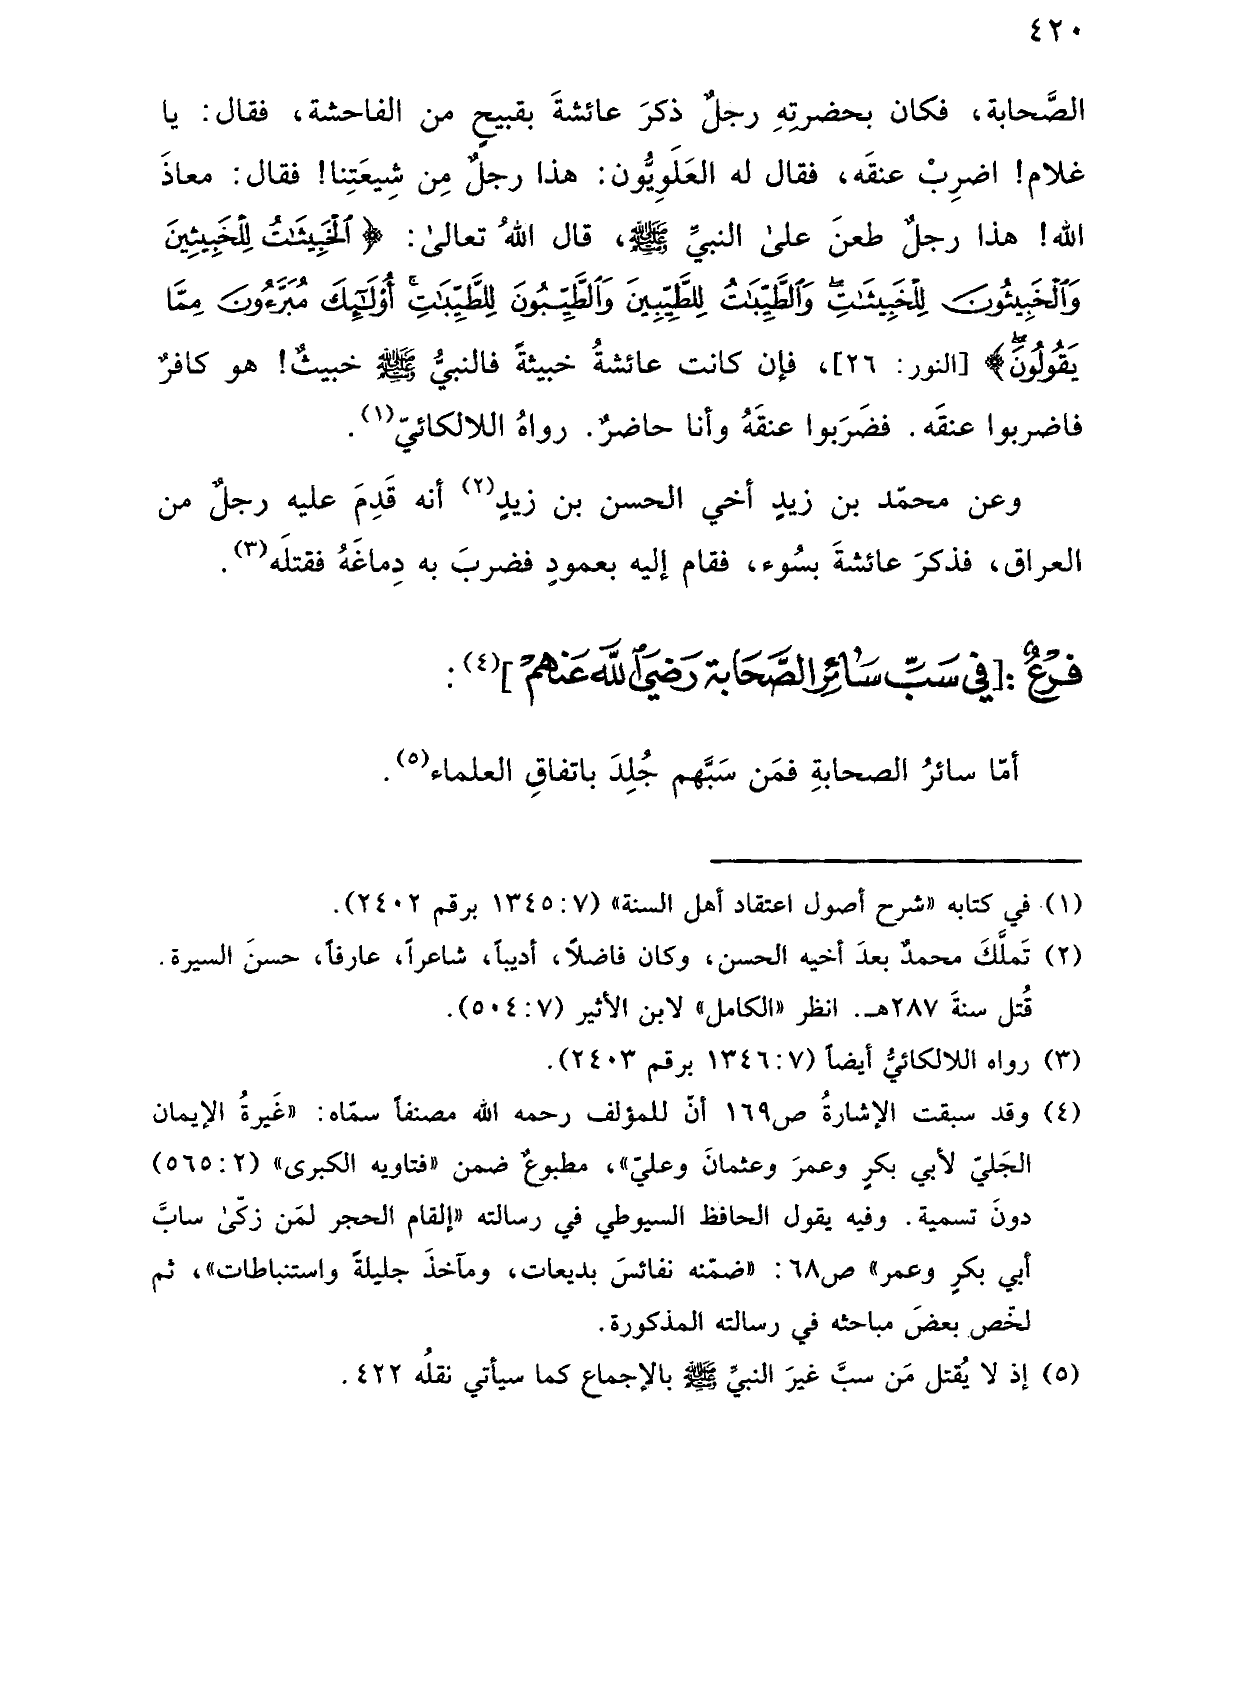 ٤٢٠
الصَّحابة، فكان بحضرتِهِ رجلٌ ذكرَ عائشةَ بقبيحٍ من الفاحشة، فقال: يا
غلام! اضرِبْ عنقَه، فقال له العَلَوِيُّون: هذا رجلٌ مِن شِيعَتِنا! فقال: معاذَ
الله! هذا رجلٌ طعنَ علىٰ النبيِّ ﷺ، قال اللهُ تعالىٰ: ﴿ٱلْخَبِيثَٰتُ لِلْخَبِيثِينَ
وَٱلْخَبِيثُونَ لِلْخَبِيثَٰتِۖ وَٱلطَّيِّبَٰتُ لِلطَّيِّبِينَ وَٱلطَّيِّبُونَ لِلطَّيِّبَٰتِۚ أُوْلَٰٓئِكَ مُبَرَّءُونَ مِمَّا
يَقُولُونَۖ﴾ [النور: ٢٦]، فإن كانت عائشةُ خبيثةً فالنبيُّ ﷺ خبيثٌ! هو كافرٌ
فاضربوا عنقَه. فضَرَبوا عنقَهُ وأنا حاضرٌ. رواهُ اللالكائيّ(١).
وعن محمّد بن زيدٍ أخي الحسن بن زيدٍ(٢) أنه قَدِمَ عليه رجلٌ من
العراق، فذكرَ عائشةَ بسُوء، فقام إليه بعمودٍ فضربَ به دِماغَهُ فقتلَه(٣).
فَرْعٌ: [في سَبِّ سَائِرِ الصَّحَابة رَضِيَ اللَّه عَنهُمْ](٤):
أمّا سائرُ الصحابةِ فمَن سَبَّهم جُلِدَ باتفاقِ العلماء(٥).
(١) في كتابه «شرح أصول اعتقاد أهل السنة» (٧: ١٣٤٥ برقم ٢٤٠٢).
(٢) تَملَّكَ محمدٌ بعدَ أخيه الحسن، وكان فاضلاً، أديباً، شاعراً، عارفاً، حسنَ السيرة.
قُتل سنةَ ٢٨٧هـ. انظر «الكامل» لابن الأثير (٧: ٥٠٤).
(٣) رواه اللالكائيُّ أيضاً (٧: ١٣٤٦ برقم ٢٤٠٣).
(٤) وقد سبقت الإشارةُ ص١٦٩ أنّ للمؤلف رحمه الله مصنفاً سمّاه: «غَيرةُ الإيمان
الجَليّ لأبي بكرٍ وعمرَ وعثمانَ وعليّ»، مطبوعٌ ضمن «فتاويه الكبرى» (٢: ٥٦٥)
دونَ تسمية. وفيه يقول الحافظ السيوطي في رسالته «إلقام الحجر لمَن زكّىٰ سابَّ
أبي بكرٍ وعمر» ص٦٨: «ضمّنه نفائسَ بديعات، ومآخذَ جليلةً واستنباطات»، ثم
لخّص بعضَ مباحثه في رسالته المذكورة.
(٥) إذ لا يُقتل مَن سبَّ غيرَ النبيِّ ﷺ بالإجماع كما سيأتي نقلُه ٤٢٢.